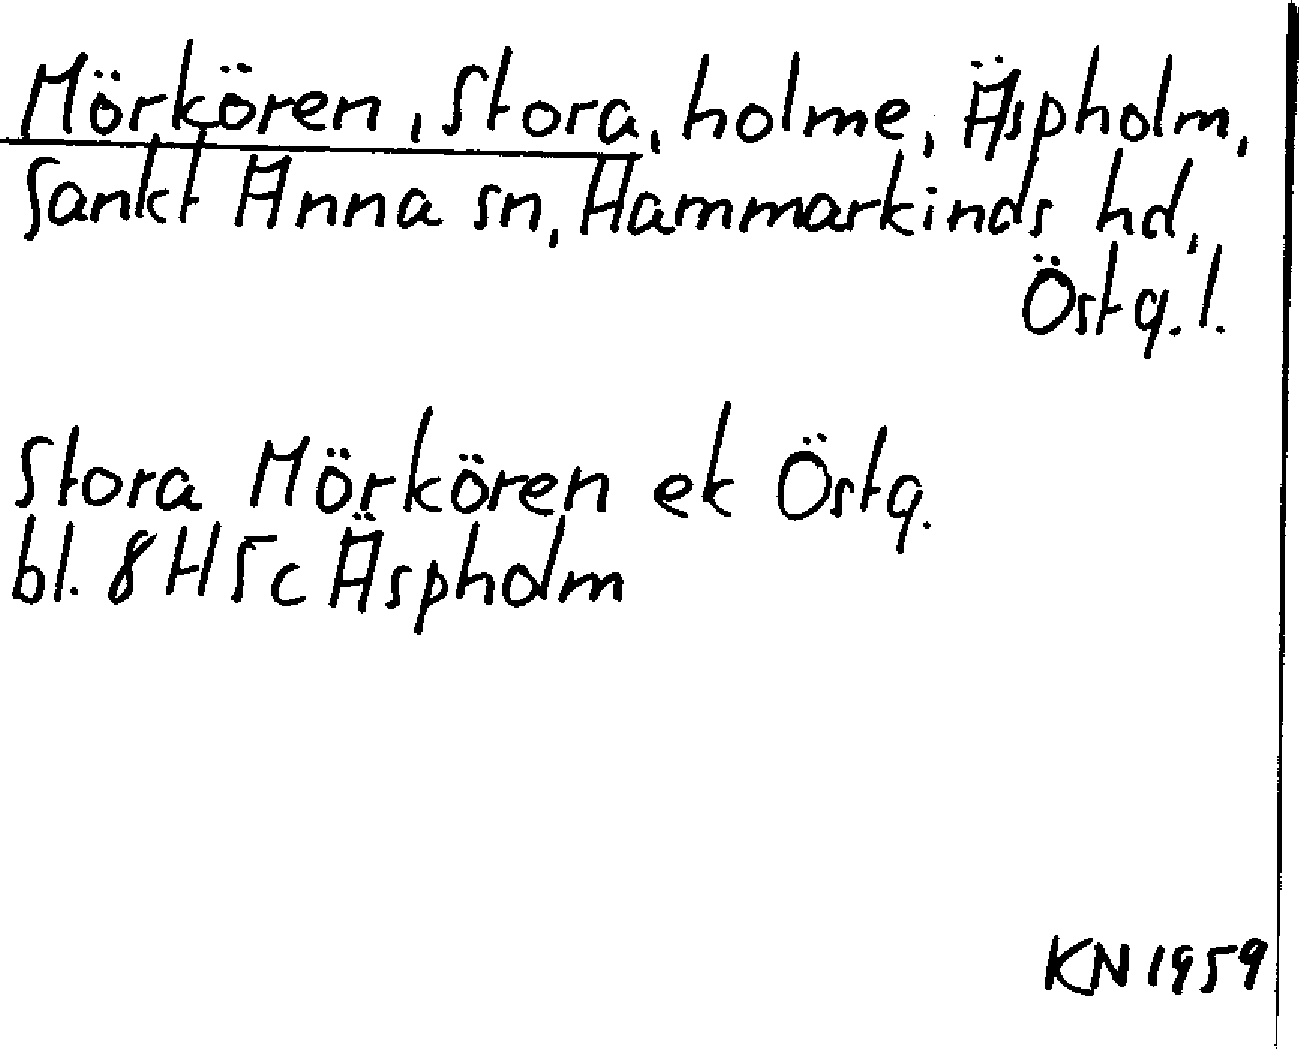 Mörkören, Stora, holme, Äspholm,
Sankt Anna sn, Hammarkinds hd,
Östg. l.
Stora Mörkören ek Östg.
bl. 8 H 5c Äspholm
KN 1959